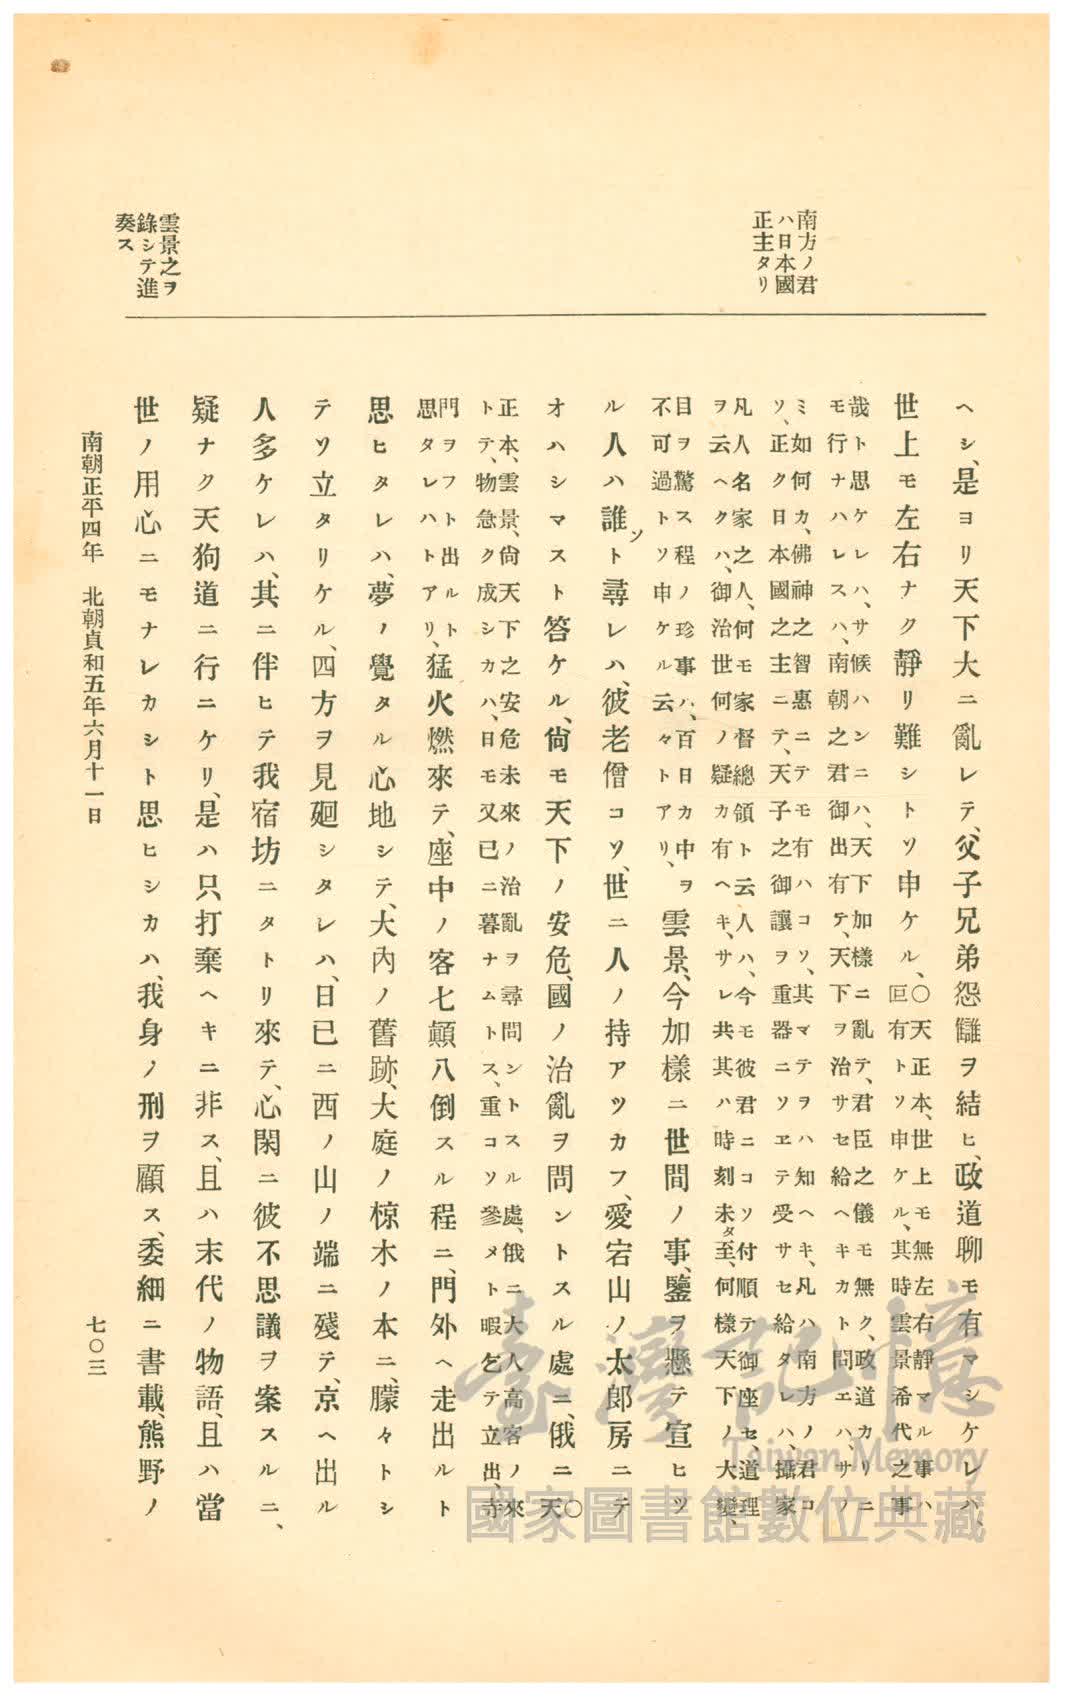 南方ノ君
ハ日本國
正主タリ
雲景之ヲ
錄シテ進
奏ス
ヘシ、是ヨリ天下大ニ亂レテ、父子兄弟怨讎ヲ結ヒ、政道聊モ有マシケレハ、
世上モ左右ナク靜リ難シトソ申ケル、
〇天正本、世上モ無左右靜マル事ハ
叵有トソ申ケル、其時雲景希代之事
哉ト思ケレハ、サ候ハンニハ、天下加樣ニ亂テ、君臣之儀モ無ク、政道カリニ
モ行ナハレスハ、南朝之君御出有テ、天下ヲ治サセ給ヘキカト問エハ、サノ
ミ如何カ、佛神之智惠ニテモ有ハコソ、其マテヲハ知ヘキ、凡ハ南方ノ君コ
ソ、正ク日本國之主ニテ、天子之御讓ヲ重器ニソヱテ受サセ給タレハ、攝家
凡人名家之人、何モ家督總領ト云人ハ、今モ彼君ニコソ付順テ御座セ、道理
ヲ云ヘクハ、御治世何ノ疑カ有ヘキ、サレ共其ハ時刻未タ至、何樣天下ノ大變、
目ヲ驚ス程ノ珍事ハ、百日カ中ヲ
不可過トソ申ケル云々トアリ、
雲景、今加樣ニ世間ノ事、鑒ヲ懸テ宣ヒツ
ル人ハ誰ソト尋レハ、彼老僧コソ、世ニ人ノ持アツカフ、愛宕山ノ太郎房ニテ
オハシマスト答ケル、尙モ天下ノ安危、國ノ治亂ヲ問ントスル處ニ、俄ニ〇天
正本、雲景、尙天下之安危未來ノ治亂ヲ尋問ントスル處、俄ニ大人高客ノ來
トテ、物急ク成シカハ、日モ又已ニ暮ナムトス、重コソ參メト暇乞テ立出、寺
門ヲフト出ルト
思タレハトアリ、
猛火燃來テ、座中ノ客七顚八倒スル程ニ、門外ヘ走出ルト
思ヒタレハ、夢ノ覺タル心地シテ、大內ノ舊跡、大庭ノ椋木ノ本ニ、朦々トシ
テソ立タリケル、四方ヲ見廻シタレハ、日已ニ西ノ山ノ端ニ殘テ、京ヘ出ル
人多ケレハ、其ニ伴ヒテ我宿坊ニタトリ來テ、心閑ニ彼不思議ヲ案スルニ、
疑ナク天狗道ニ行ニケリ、是ハ只打棄ヘキニ非ス、且ハ末代ノ物語、且ハ當
世ノ用心ニモナレカシト思ヒシカハ、我身ノ刑ヲ顧ス、委細ニ書載、熊野ノ
南朝正平四年 北朝貞和五年六月十一日
七〇三
臺灣記憶
Taiwan Memory
國家圖書館數位典藏